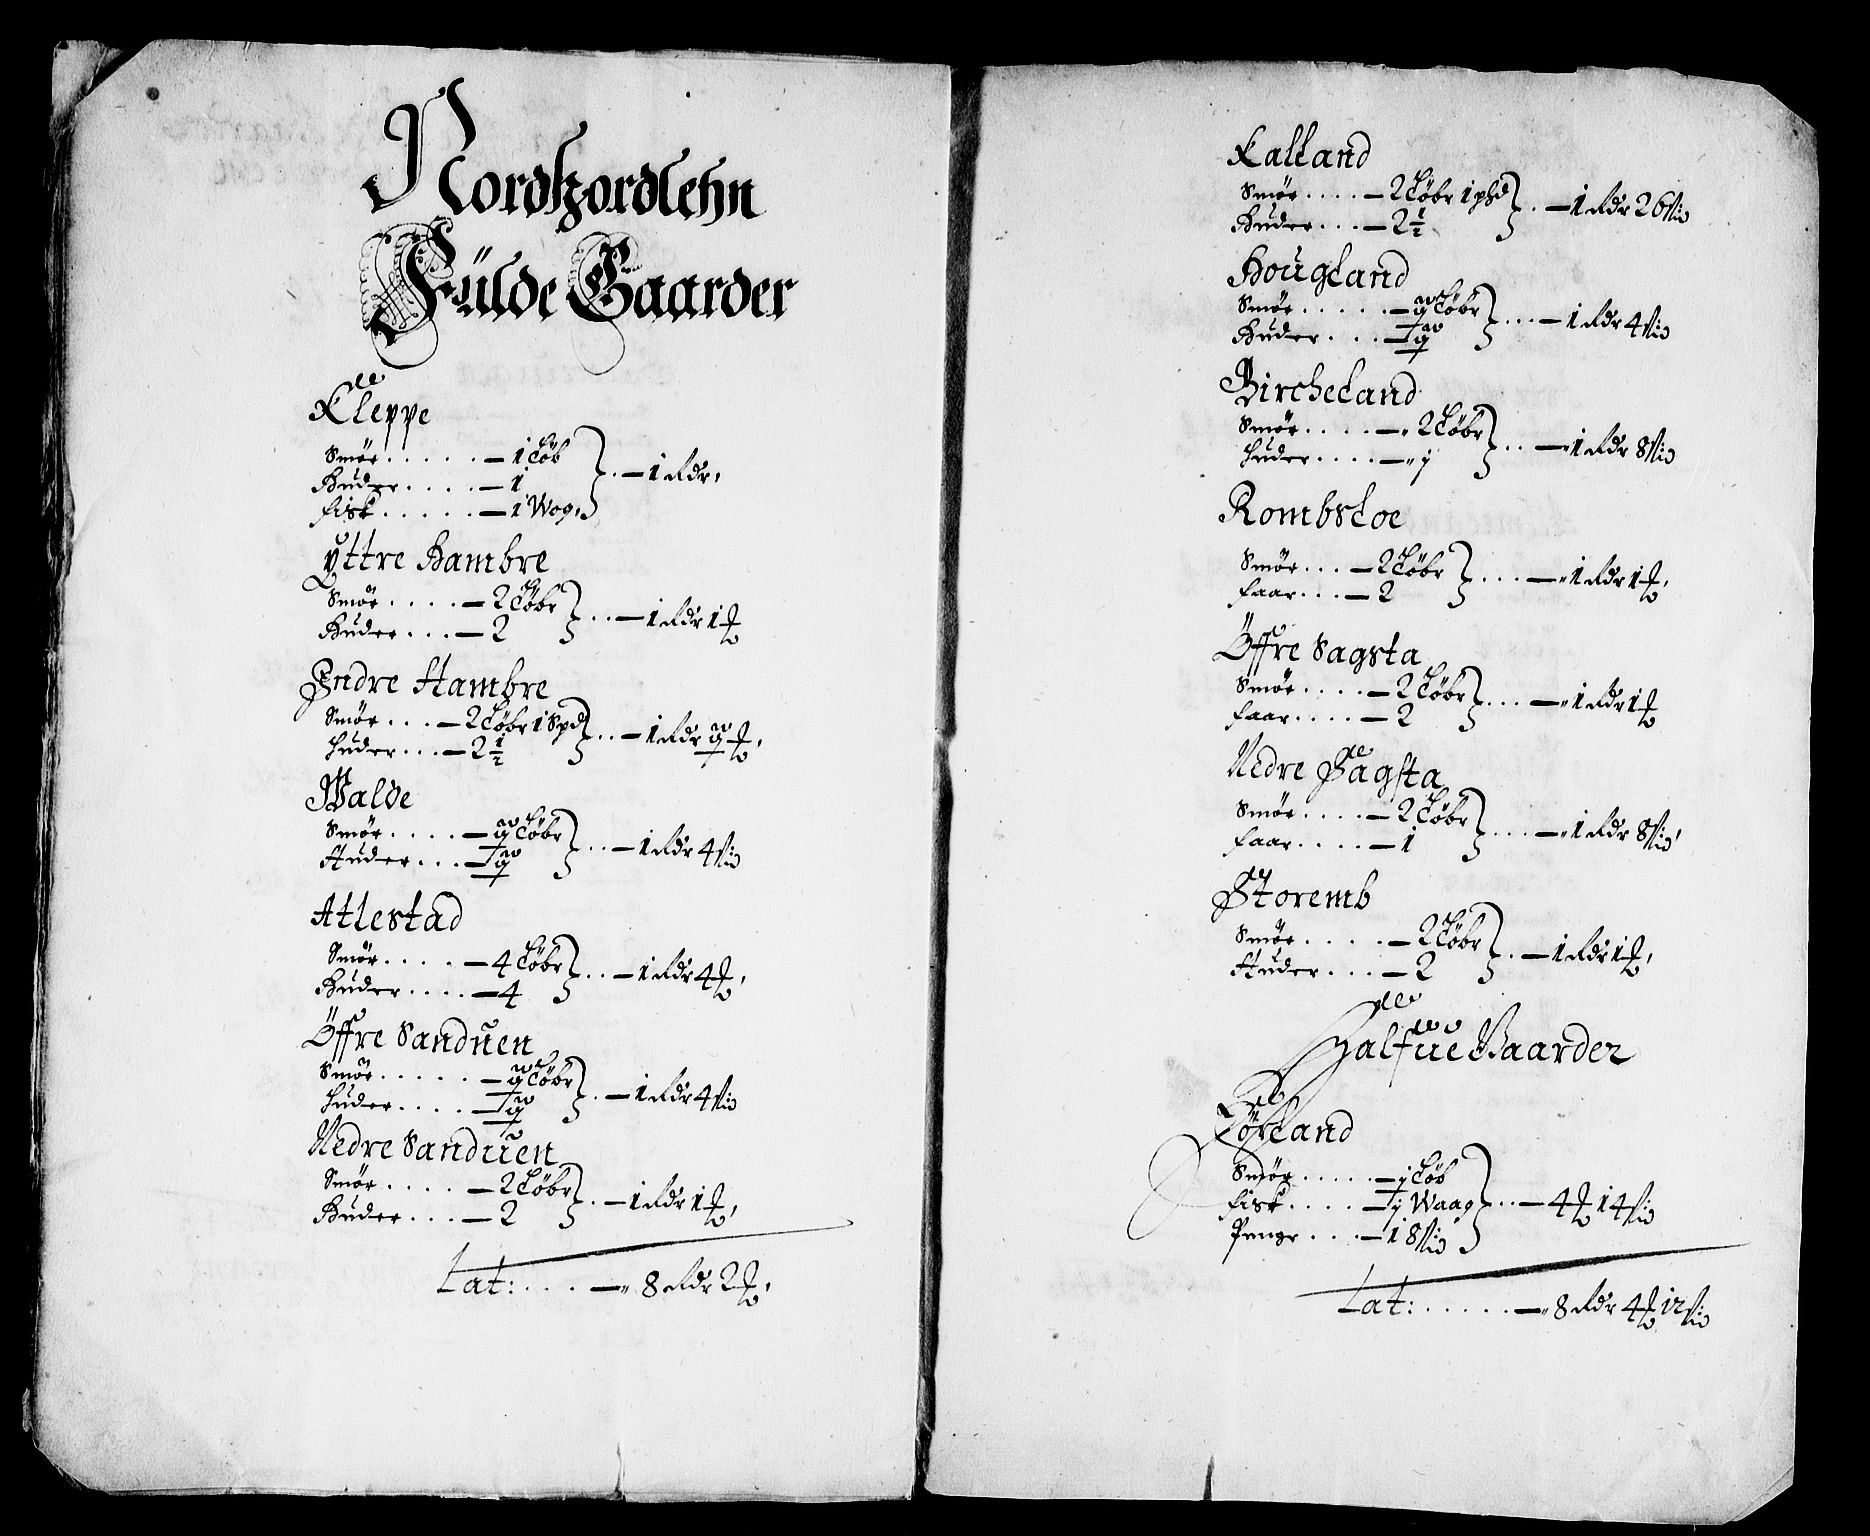 Nordhordlehn
Fülde Gaarder
Kleppe
Smör ..... — 1 Löb
Huder .... — 1
fisk ..... — 1 Wog,
.. — 1 Rdr,
Yttre Hambre
Smör .... — 2 Löbr
Huder ... — 2
.. — 1 Rdr 1 ₰
Indre Hambre
Smör ... — 2 Löbr 1 Spd
huder ... — 2 ½
.. — 1 Rdr
Walde
Smör .... — Löbr
Huder ... —
.. — 1 Rdr 4 ß
Atlestad
Smör .... — 4 Löbr
Huder .... — 4
.. — 1 Rdr 4 ₰,
Öffre Sanduen
Smör ..... — Löbr
huder .... —
. — 1 Rdr 4 ß
Nedre Sanduen
Smör .... — 2 Löbr
Huder ... — 2
.. — 1 Rdr 1 ₰,
Lat: .... — 8 Rdr 2 ₰,
Kalland
Smör .... — 2 Löbr 1 pd
Huder ... — 2 ½
.. — 1 Rdr 26 ß
Hougland
Smör ..... — Löbr
Huder ... —
... — 1 Rdr 4 ß
Bircheland
Smör .... — 2 Löbr
huder .... — j
.. — 1 Rdr 8 ß
Rombsloe
Smör ... — 2 Löbr
faar ... — 2
... — 1 Rdr 1 ₰,
Öffre Sagsta
Smör .... — 2 Löbr
faar .... — 2
... — 1 Rdr 1 ₰
Nedre Sagsta
Smör .... — 2 Löbr
faar .... — 1
... — 1 Rdr 8 ß,
Storemb
Smör .... — 2 Löbr
Huder ... — 2
.. — 1 Rdr 1 ₰,
Halfüe Gaarder
Lörland
Smör ..... — j Löb
fisk .... — j Waag
Penge ... — 18 ß
... — 4 ₰ 14 ß
Lat: ..... — 8 Rdr 4 ₰ 12 ß